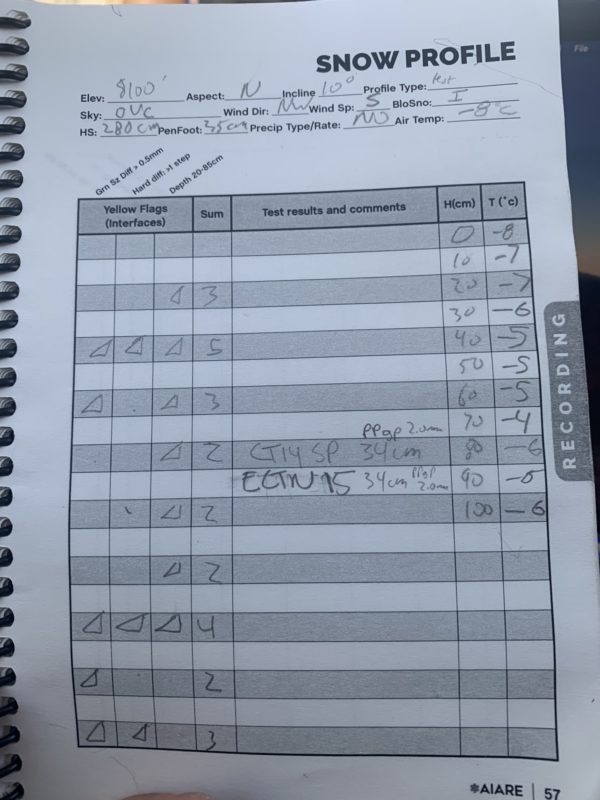 File
SNOW PROFILE
Elev: 8100' Aspect: N Incline 10° Profile Type: test
Sky: OVC Wind Dir: NW Wind Sp: S BloSno: I
HS: 280 cm PenFoot: 35cm Precip Type/Rate: NO Air Temp: -8°C
Grn Sz Diff > 0.5mm
Hard diff: >1 step
Depth 20-85cm
Yellow Flags (Interfaces) Sum Test results and comments H(cm) T (°c)
0 -8
10 -7
3 20 -7
30 -6
5 40 -5
50 -5
3 60 -5
PPgp 2.0mm 70 -4
2 CT14 SP 34cm 80 -6
ECTN15 34cm PPgp 2.0mm 90 -6
2 100 -6
2
4
2
3
RECORDING
*AIARE | 57